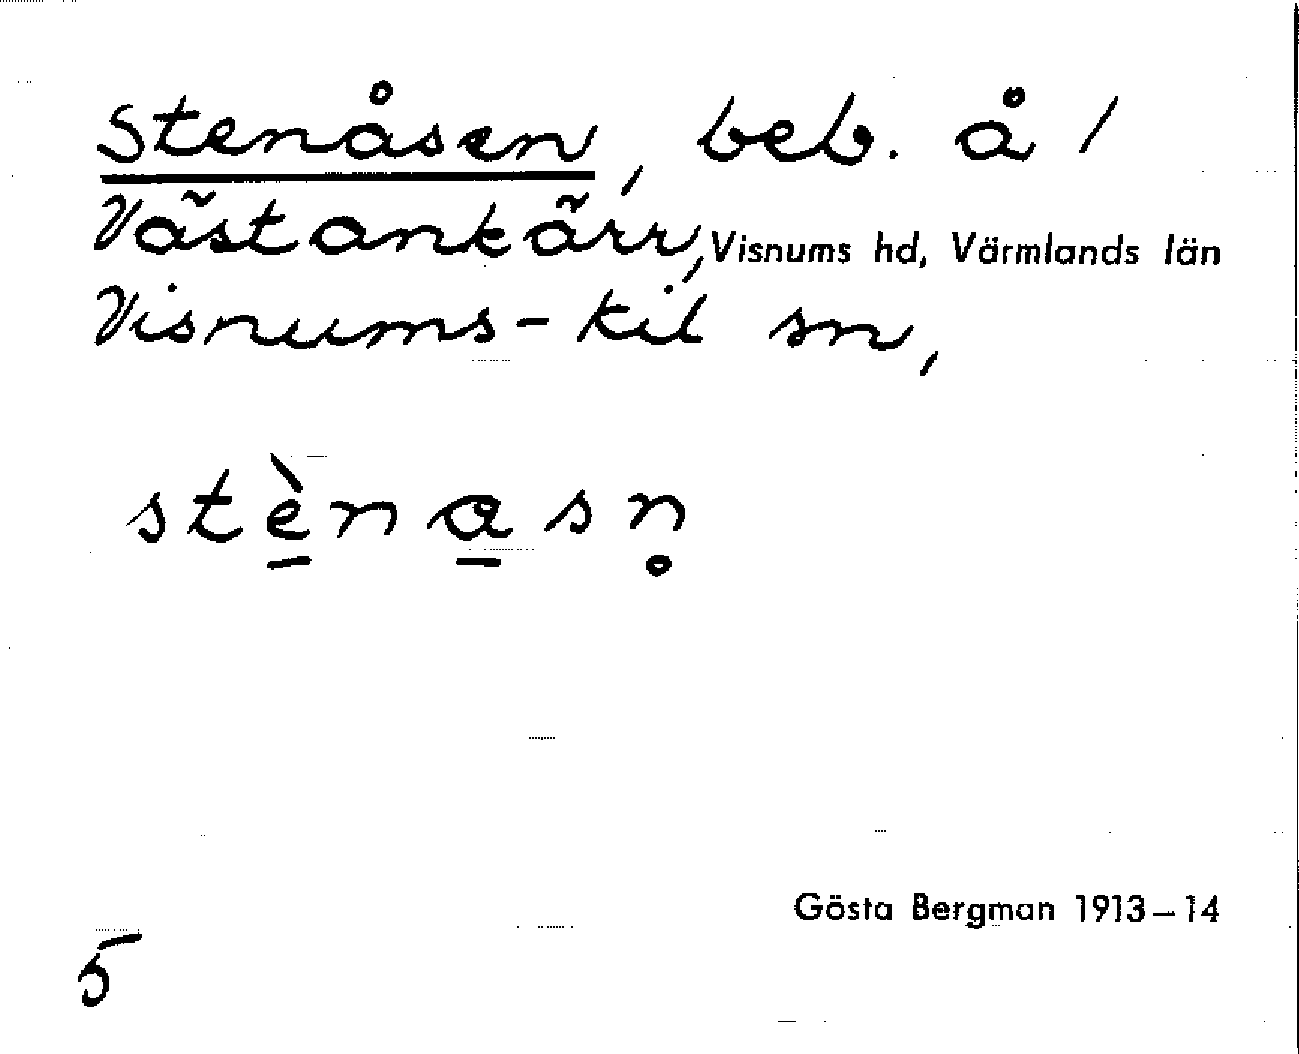 Stenåsen, beb. å /
Västankärr, Visnums hd, Värmlands län
Visnums-kil sn,
stè̱na̱sn̥
Gösta Bergman 1913–14
5